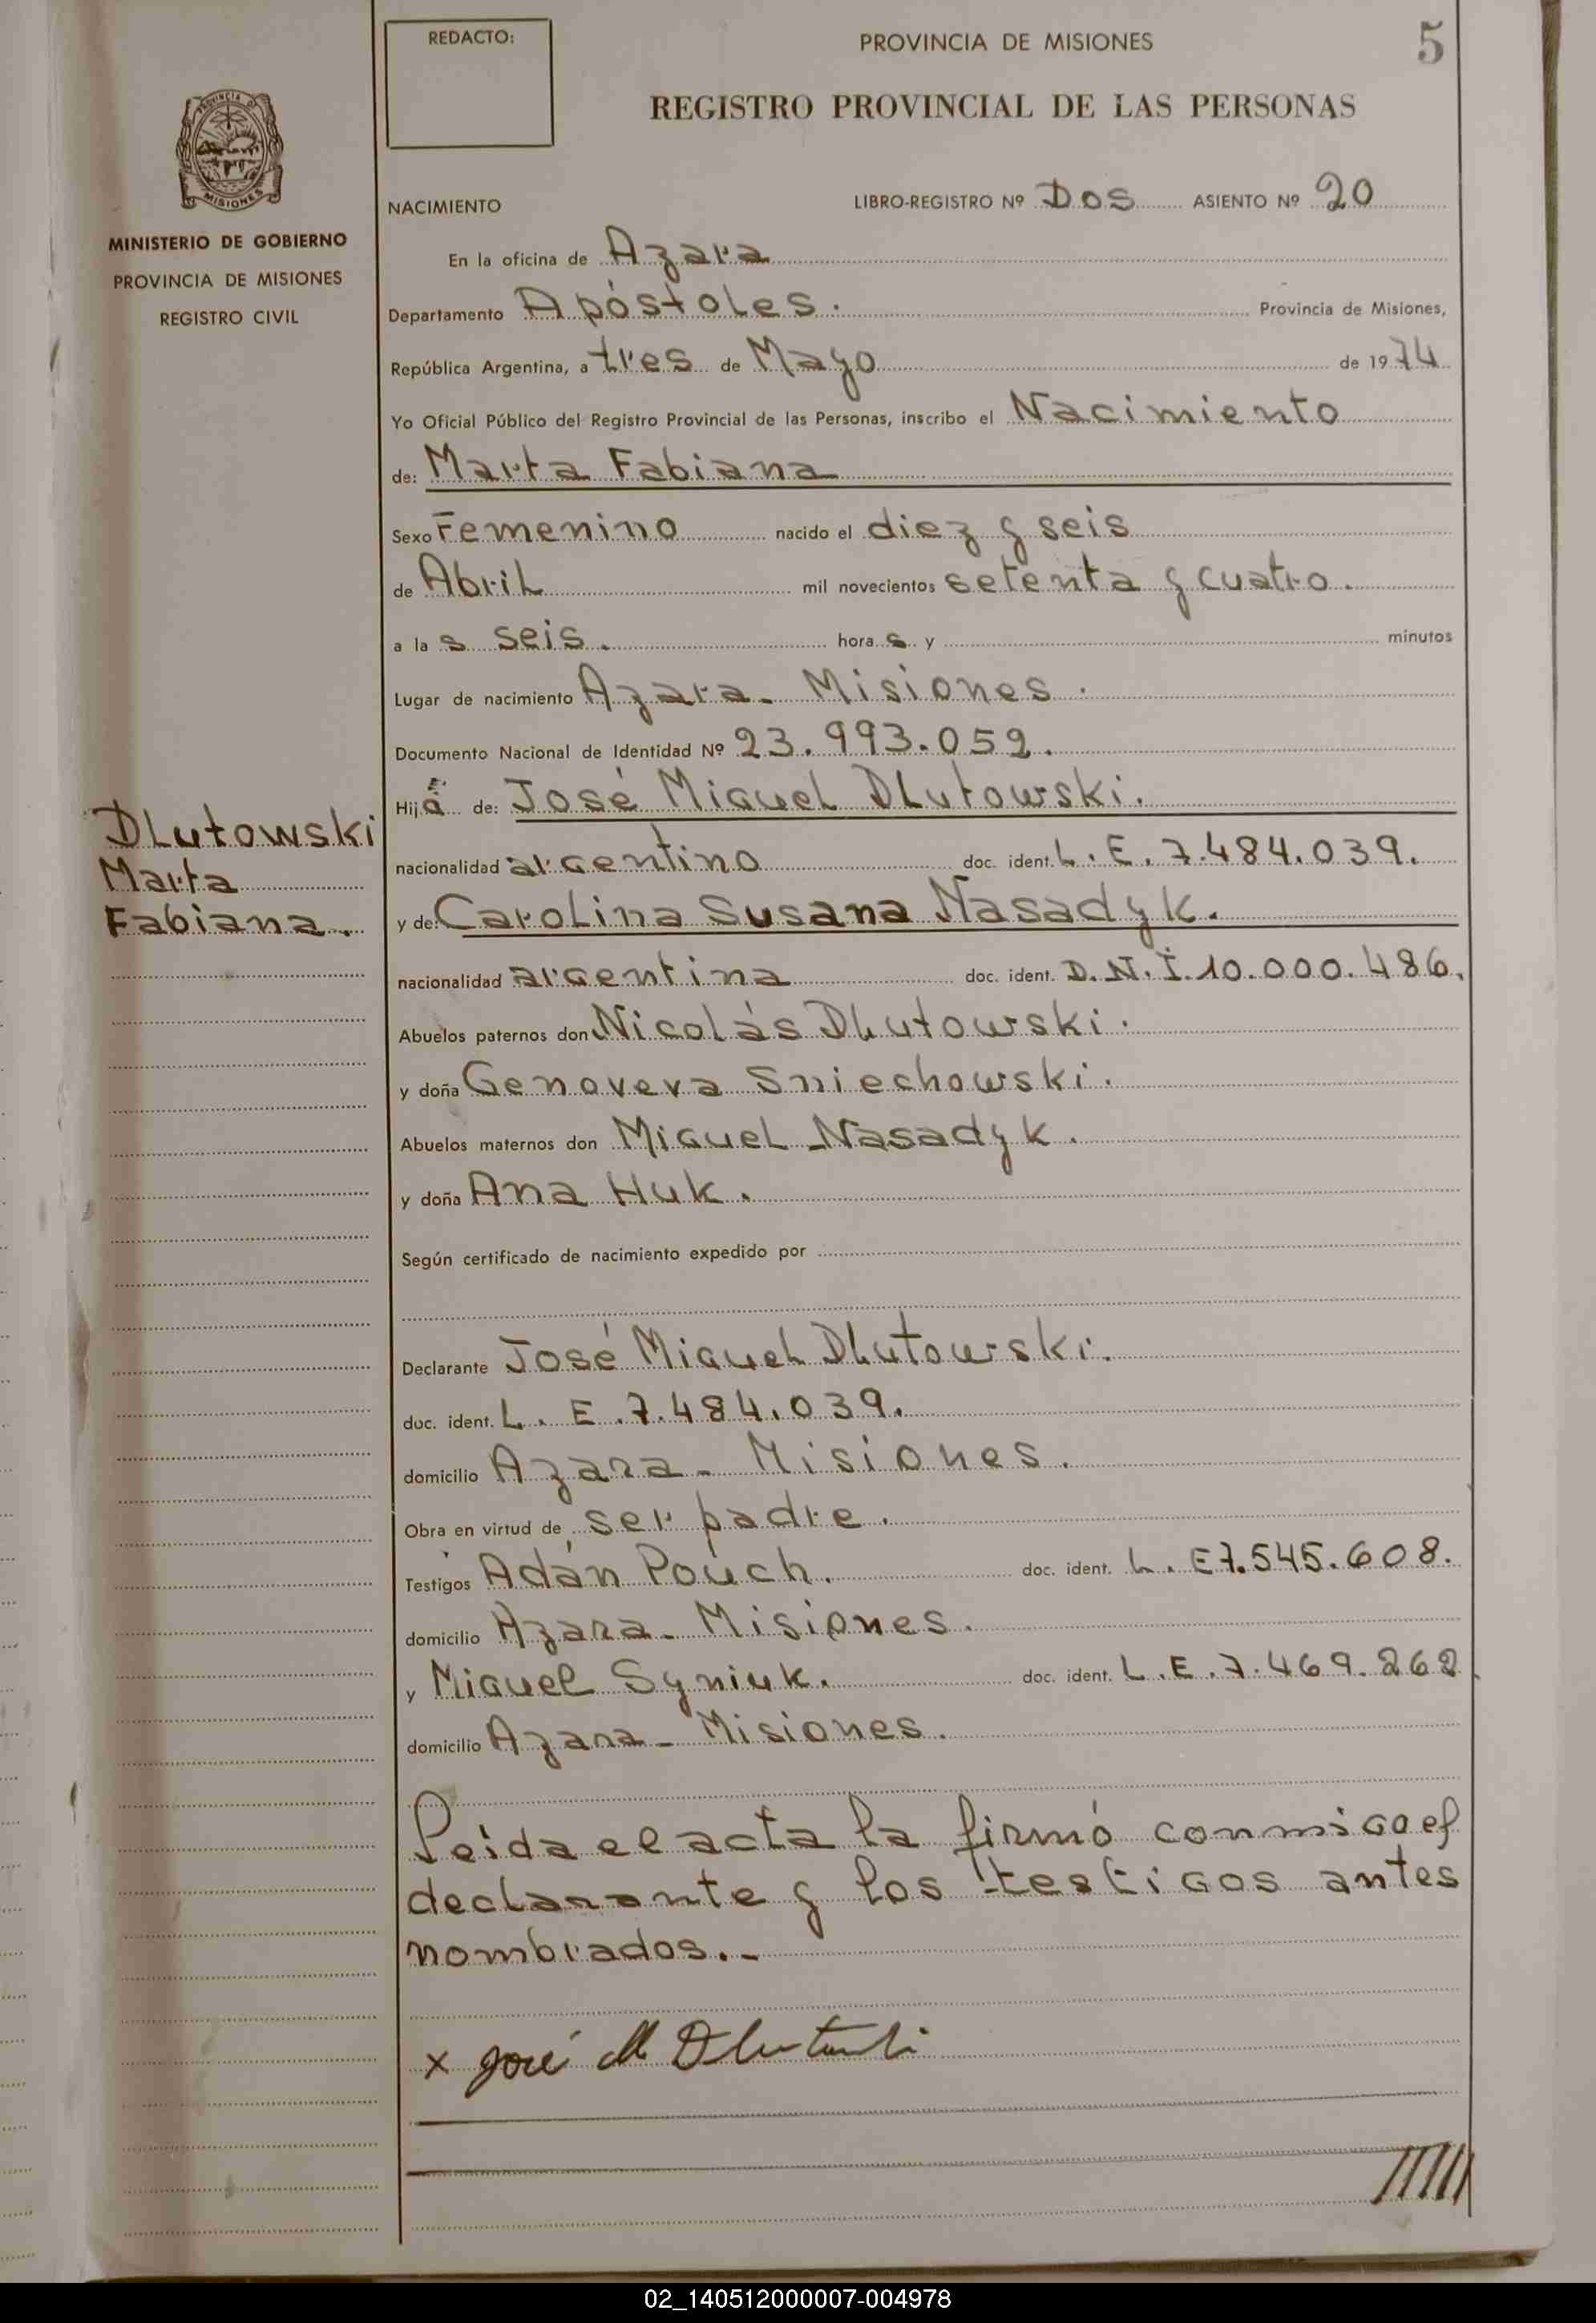 REDACTO:
PROVINCIA DE MISIONES
5
REGISTRO PROVINCIAL DE LAS PERSONAS
PROVINCIA DE
MISIONES
MINISTERIO DE GOBIERNO
PROVINCIA DE MISIONES
REGISTRO CIVIL
NACIMIENTO LIBRO-REGISTRO Nº Dos ASIENTO Nº 20
En la oficina de Azara
Departamento Apóstoles. Provincia de Misiones,
República Argentina, a tres de Mayo de 1974
Yo Oficial Público del Registro Provincial de las Personas, inscribo el Nacimiento
de: Marta Fabiana
Sexo Femenino nacido el diez y seis
de Abril mil novecientos setenta y cuatro.
a la s seis. hora s y minutos
Lugar de nacimiento Azara - Misiones.
Documento Nacional de Identidad Nº 23.993.059.
Hij a de: José Miguel Dlutowski.
Dlutowski
Marta
Fabiana.
nacionalidad argentino doc. ident. L. E. 7.484.039.
y de: Carolina Susana Nasadyk.
nacionalidad argentina doc. ident. D.N.I. 10.000.486.
Abuelos paternos don Nicolás Dlutowski.
y doña Genoveva Sniechowski.
Abuelos maternos don Miguel Nasadyk.
y doña Ana Huk.
Según certificado de nacimiento expedido por
Declarante José Miguel Dlutowski.
doc. ident. L. E. 7.484.039.
domicilio Azara - Misiones.
Obra en virtud de ser padre.
Testigos Adán Pouch. doc. ident. L. E 7.545.608.
domicilio Azara - Misiones.
y Miguel Syniuk. doc. ident. L. E. 7.469.262
domicilio Azara - Misiones.
Leida el acta la firmó conmigo el
declarante y los testigos antes
nombrados.-
x José M Dlutowski
02_140512000007-004978